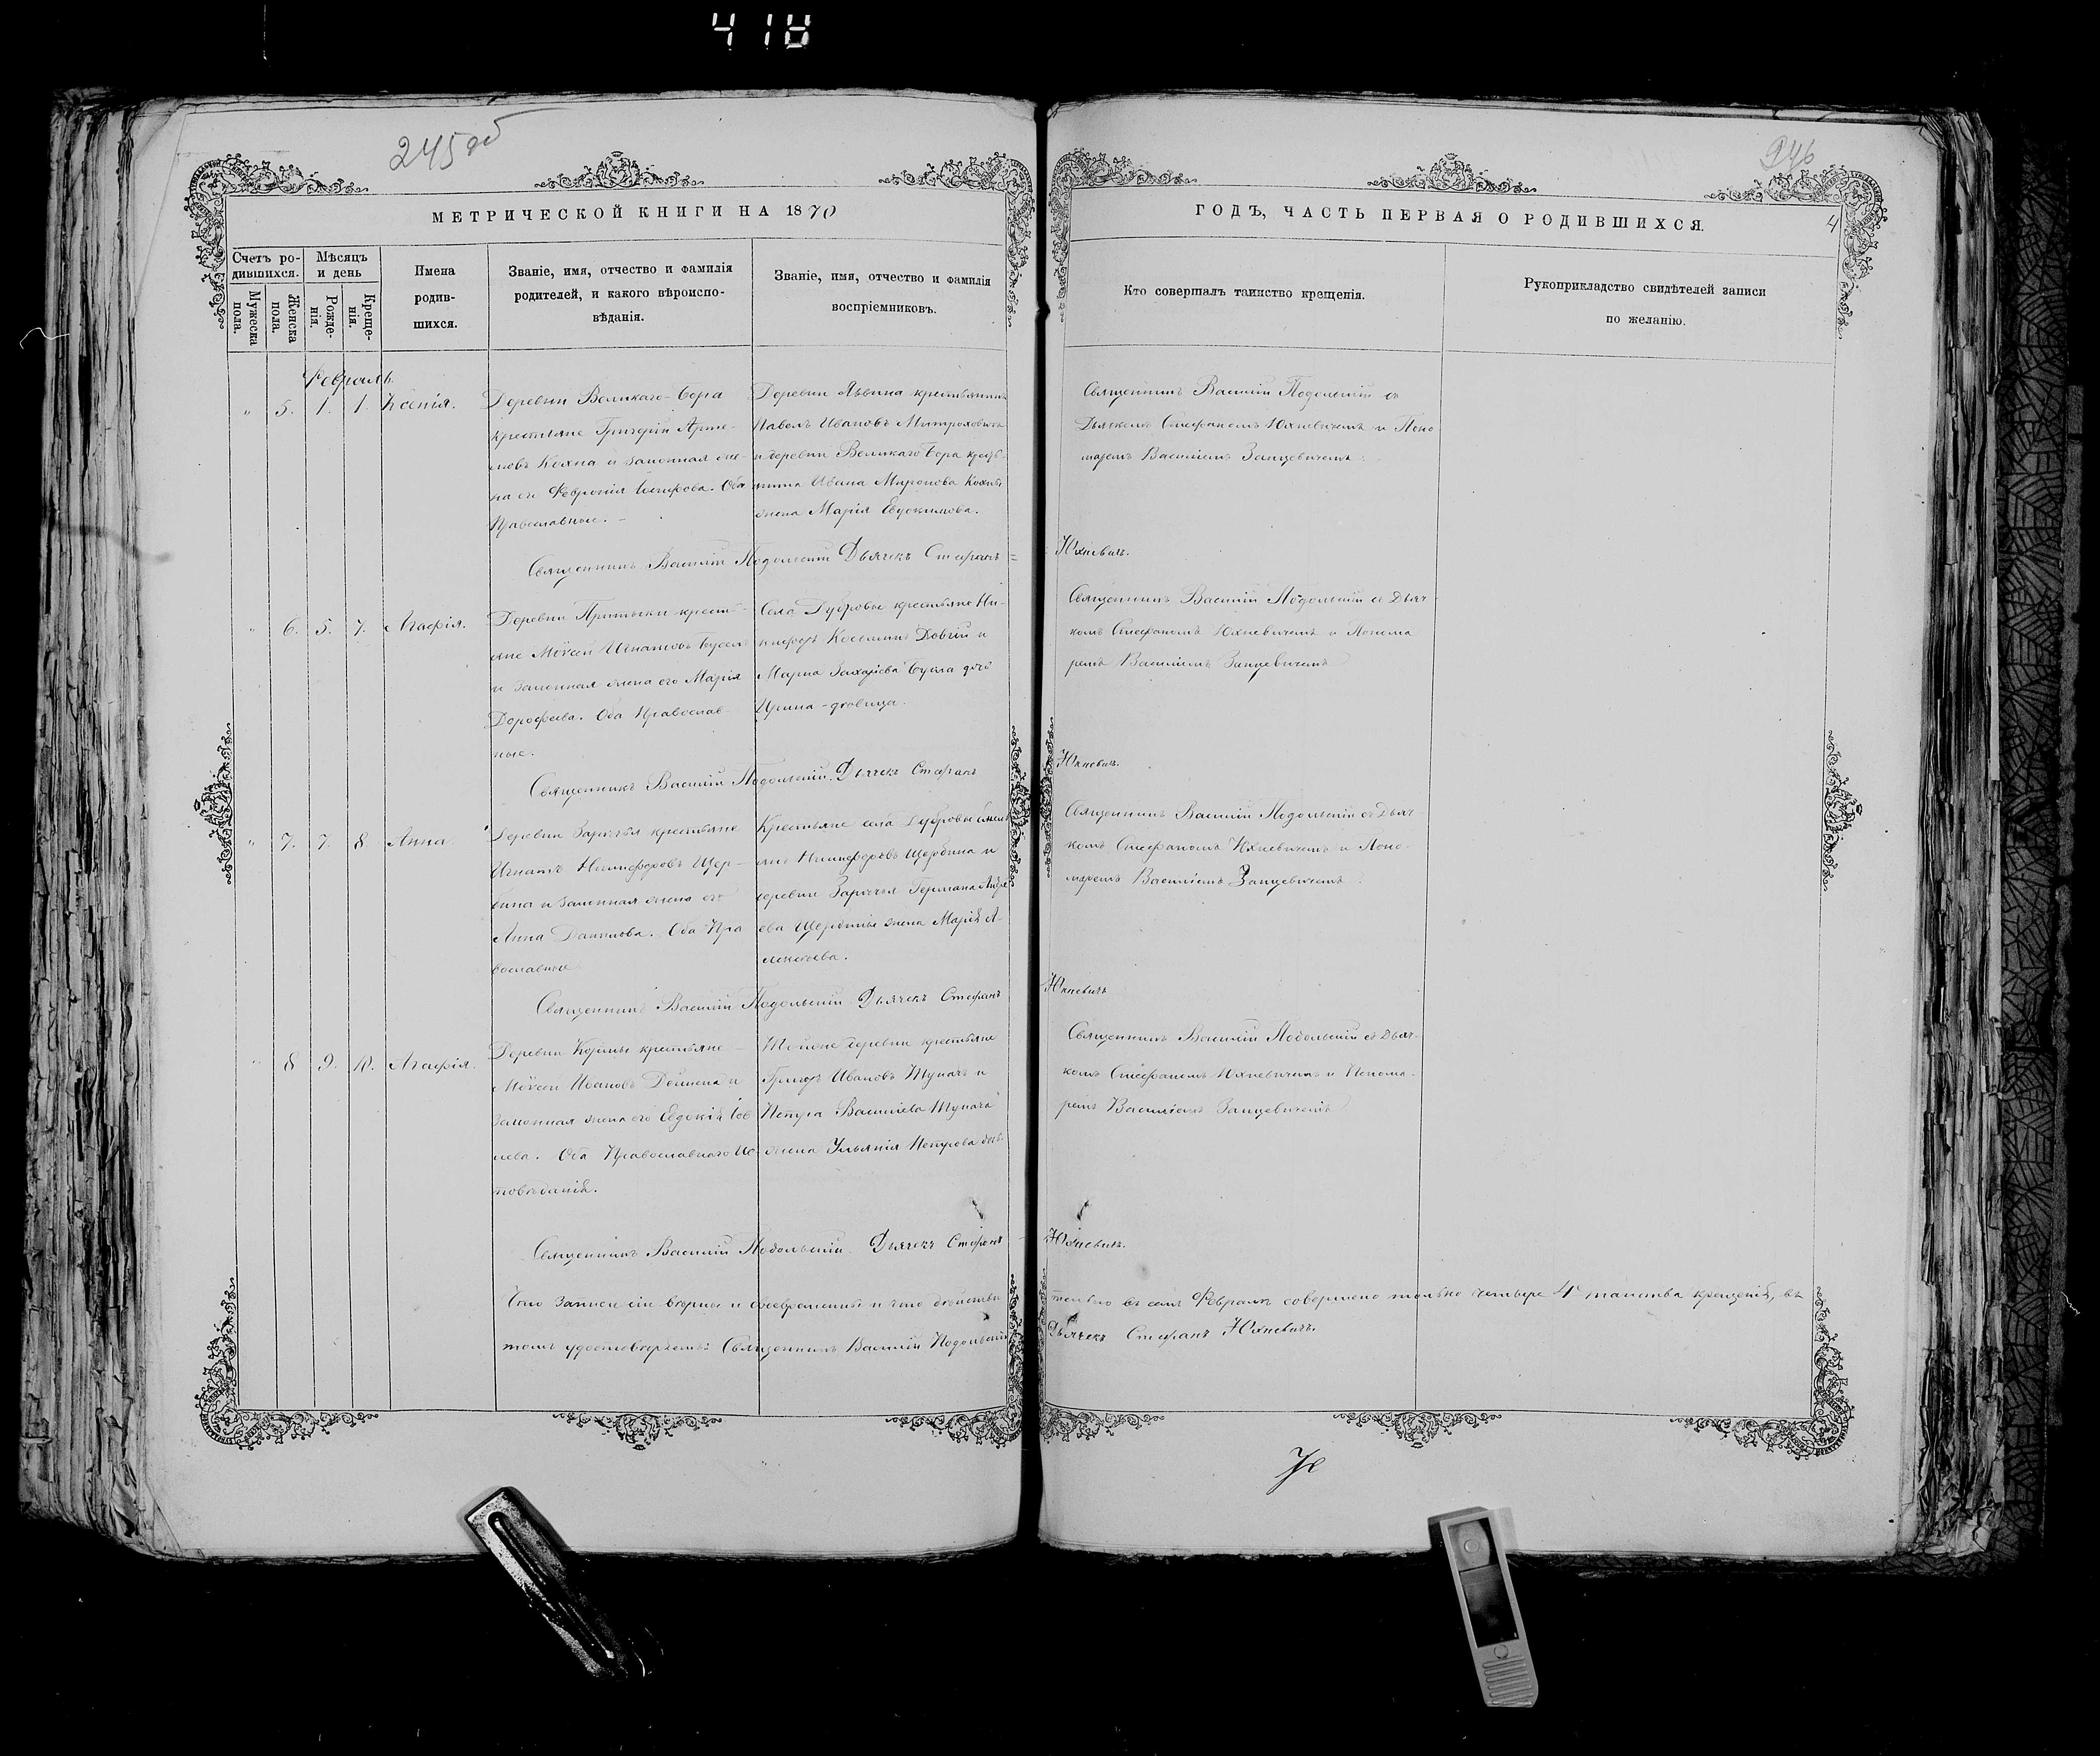 418
245 об
246
МЕТРИЧЕСКОЙ КНИГИ НА 1870
ГОДЪ, ЧАСТЬ ПЕРВАЯ О РОДИВШИХСЯ.
4
Счетъ ро-
дившихся.
Мужеска
пола.
Женска
пола.
Мѣсяцъ
и день
Рожде-
нія.
Креще-
нія.
Имена
родив-
шихся.
Званіе, имя, отчество и фамилія
родителей, и какого вѣроиспо-
вѣданія.
Званіе, имя, отчество и фамилія
воспріемниковъ.
Кто совершалъ таинство крещенія.
Рукоприкладство свидѣтелей записи
по желанію.
Февраль.
" 5. 1. 1. Ксенія.
Деревни Великаго-Бора
крестьяне Григорій Арте-
мовъ Кохна и законная же-
на его Февронія Іосифова. Оба
Православные. –
Деревни Львина крестьянинъ
Павелъ Ивановъ Митроховичъ
и деревни Великаго Бора кресть-
янина Ивана Миронова Кохны
жена Марія Евдокимова.
Священникъ Василій Подольскій съ
Дьячкомъ Стефаномъ Юхневичемъ и Поно
маремъ Василіемъ Занцевичемъ.
Священникъ Василій Подольскій Дьячекъ Стефанъ =
Юхневичъ.
" 6. 5. 7. Агафія.
Деревни Притыки кресть-
яне Моѵсей Игнатовъ Бусел
и законная жена его Марія
Дорофеева. Оба Православ-
ные.
Села Дубровы крестьяне Ни-
кифоръ Косьминъ Довгій и
Марка Захаріева Бусла дочь
Ирина - дѣвица.
Священникъ Василій Подольскій съ Дьяч
комъ Стефаномъ Юхневичемъ и Понома
ремъ Василіемъ Занцевичемъ
Священникъ Василій Подольскій. Дьячекъ Стефанъ
Юхневичъ.
" 7. 7. 8. Анна
Деревни Зарѣчья крестьяне
Игнатъ Никифоровъ Щер-
бина и законная жена его
Анна Данилова. Оба Пра
вославные
Крестьяне села Дубровы
Никифоровъ Щербина и
деревни Зарѣчья Германа Андре
ева Щербины жена Марія А-
лексѣева.
Священникъ Василій Подольскій съ Дьяч
комъ Стефаномъ Юхневичемъ и Поно-
маремъ Василіемъ Занцевичемъ.
Священникъ Василій Подольскій Дьячекъ Стефанъ
Юхневичъ
" 8 9. 10. Агафія.
Деревни Кормы крестьяне
Моѵсей Ивановъ и
законная жена его Евдокія
Оба Православнаго Ис-
повѣданія.
Тойже деревни крестьяне
Ивановъ Тукачъ и
Петра Василіева Тукача
жена Ульянія Петрова
Священникъ Василій Подольскій съ Дьяч-
комъ Стефаномъ Юхневичемъ и Понома-
ремъ Василіемъ Занцевичемъ
Священникъ Василій Подольскій. Дьячекъ Стефанъ
Юхневичъ.
Что записи сіи вѣрны и своевременны и что дѣйстви
тельно въ семъ Февралѣ совершено только четыре 4 таинства крещенія, въ
томъ удостовѣряемъ: Священникъ Василій Подольскій
Дьячекъ Стефанъ Юхневичъ.